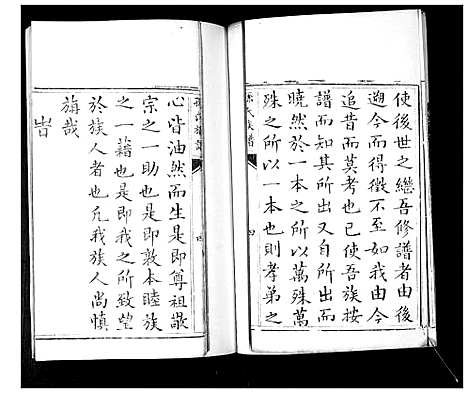 使後世之繼吾修譜者由後
遡今而得徵不至如我由今
追昔而莫考也已使吾族按
譜而知其所出又自所出而
曉然於一本之所以萬殊萬
殊之所以一本也則孝弟之
氏族譜
四
心皆油然而生是即尊祖敬
宗之一助也是即敦本睦族
之一藉也是即我之所致望
於族人者也凡我族人尚慎
旃哉
旹
四